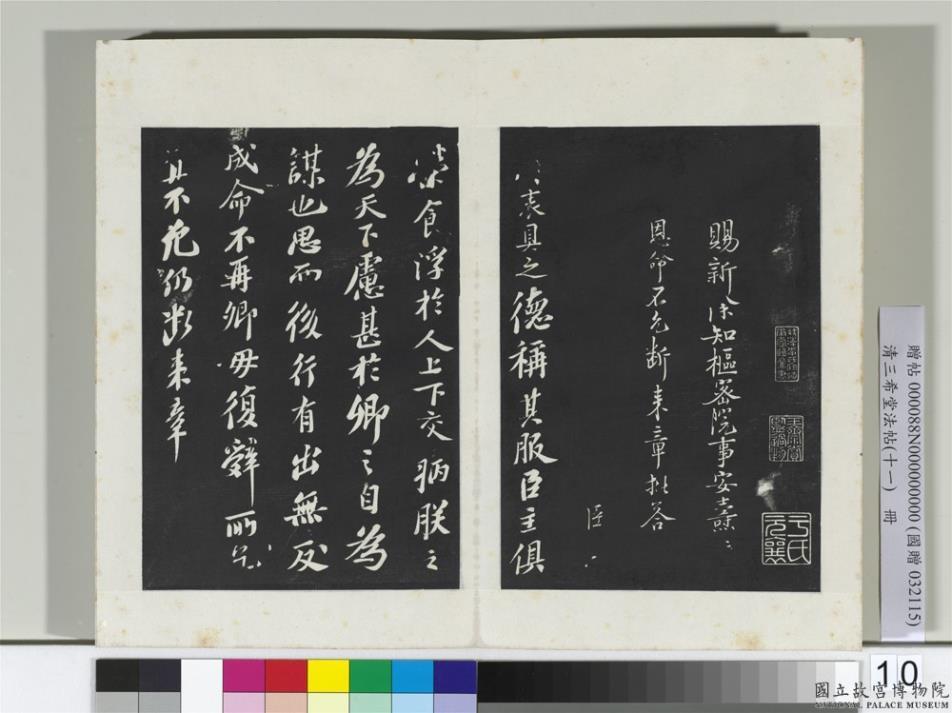 賜新除知樞密院事安燾
恩命不允斷來章批答
臣
省表具之德稱其服臣主俱
榮食浮於人上下交病朕之
為天下慮甚於卿之自為
謀也思而後行有出無反
成命不再卿毋復辭所乞
宜不允仍斷來章
贈帖 000088N000000000 (國贈 032115)
清三希堂法帖(十一) 冊
10
國立故宮博物院
NATIONAL PALACE MUSEUM